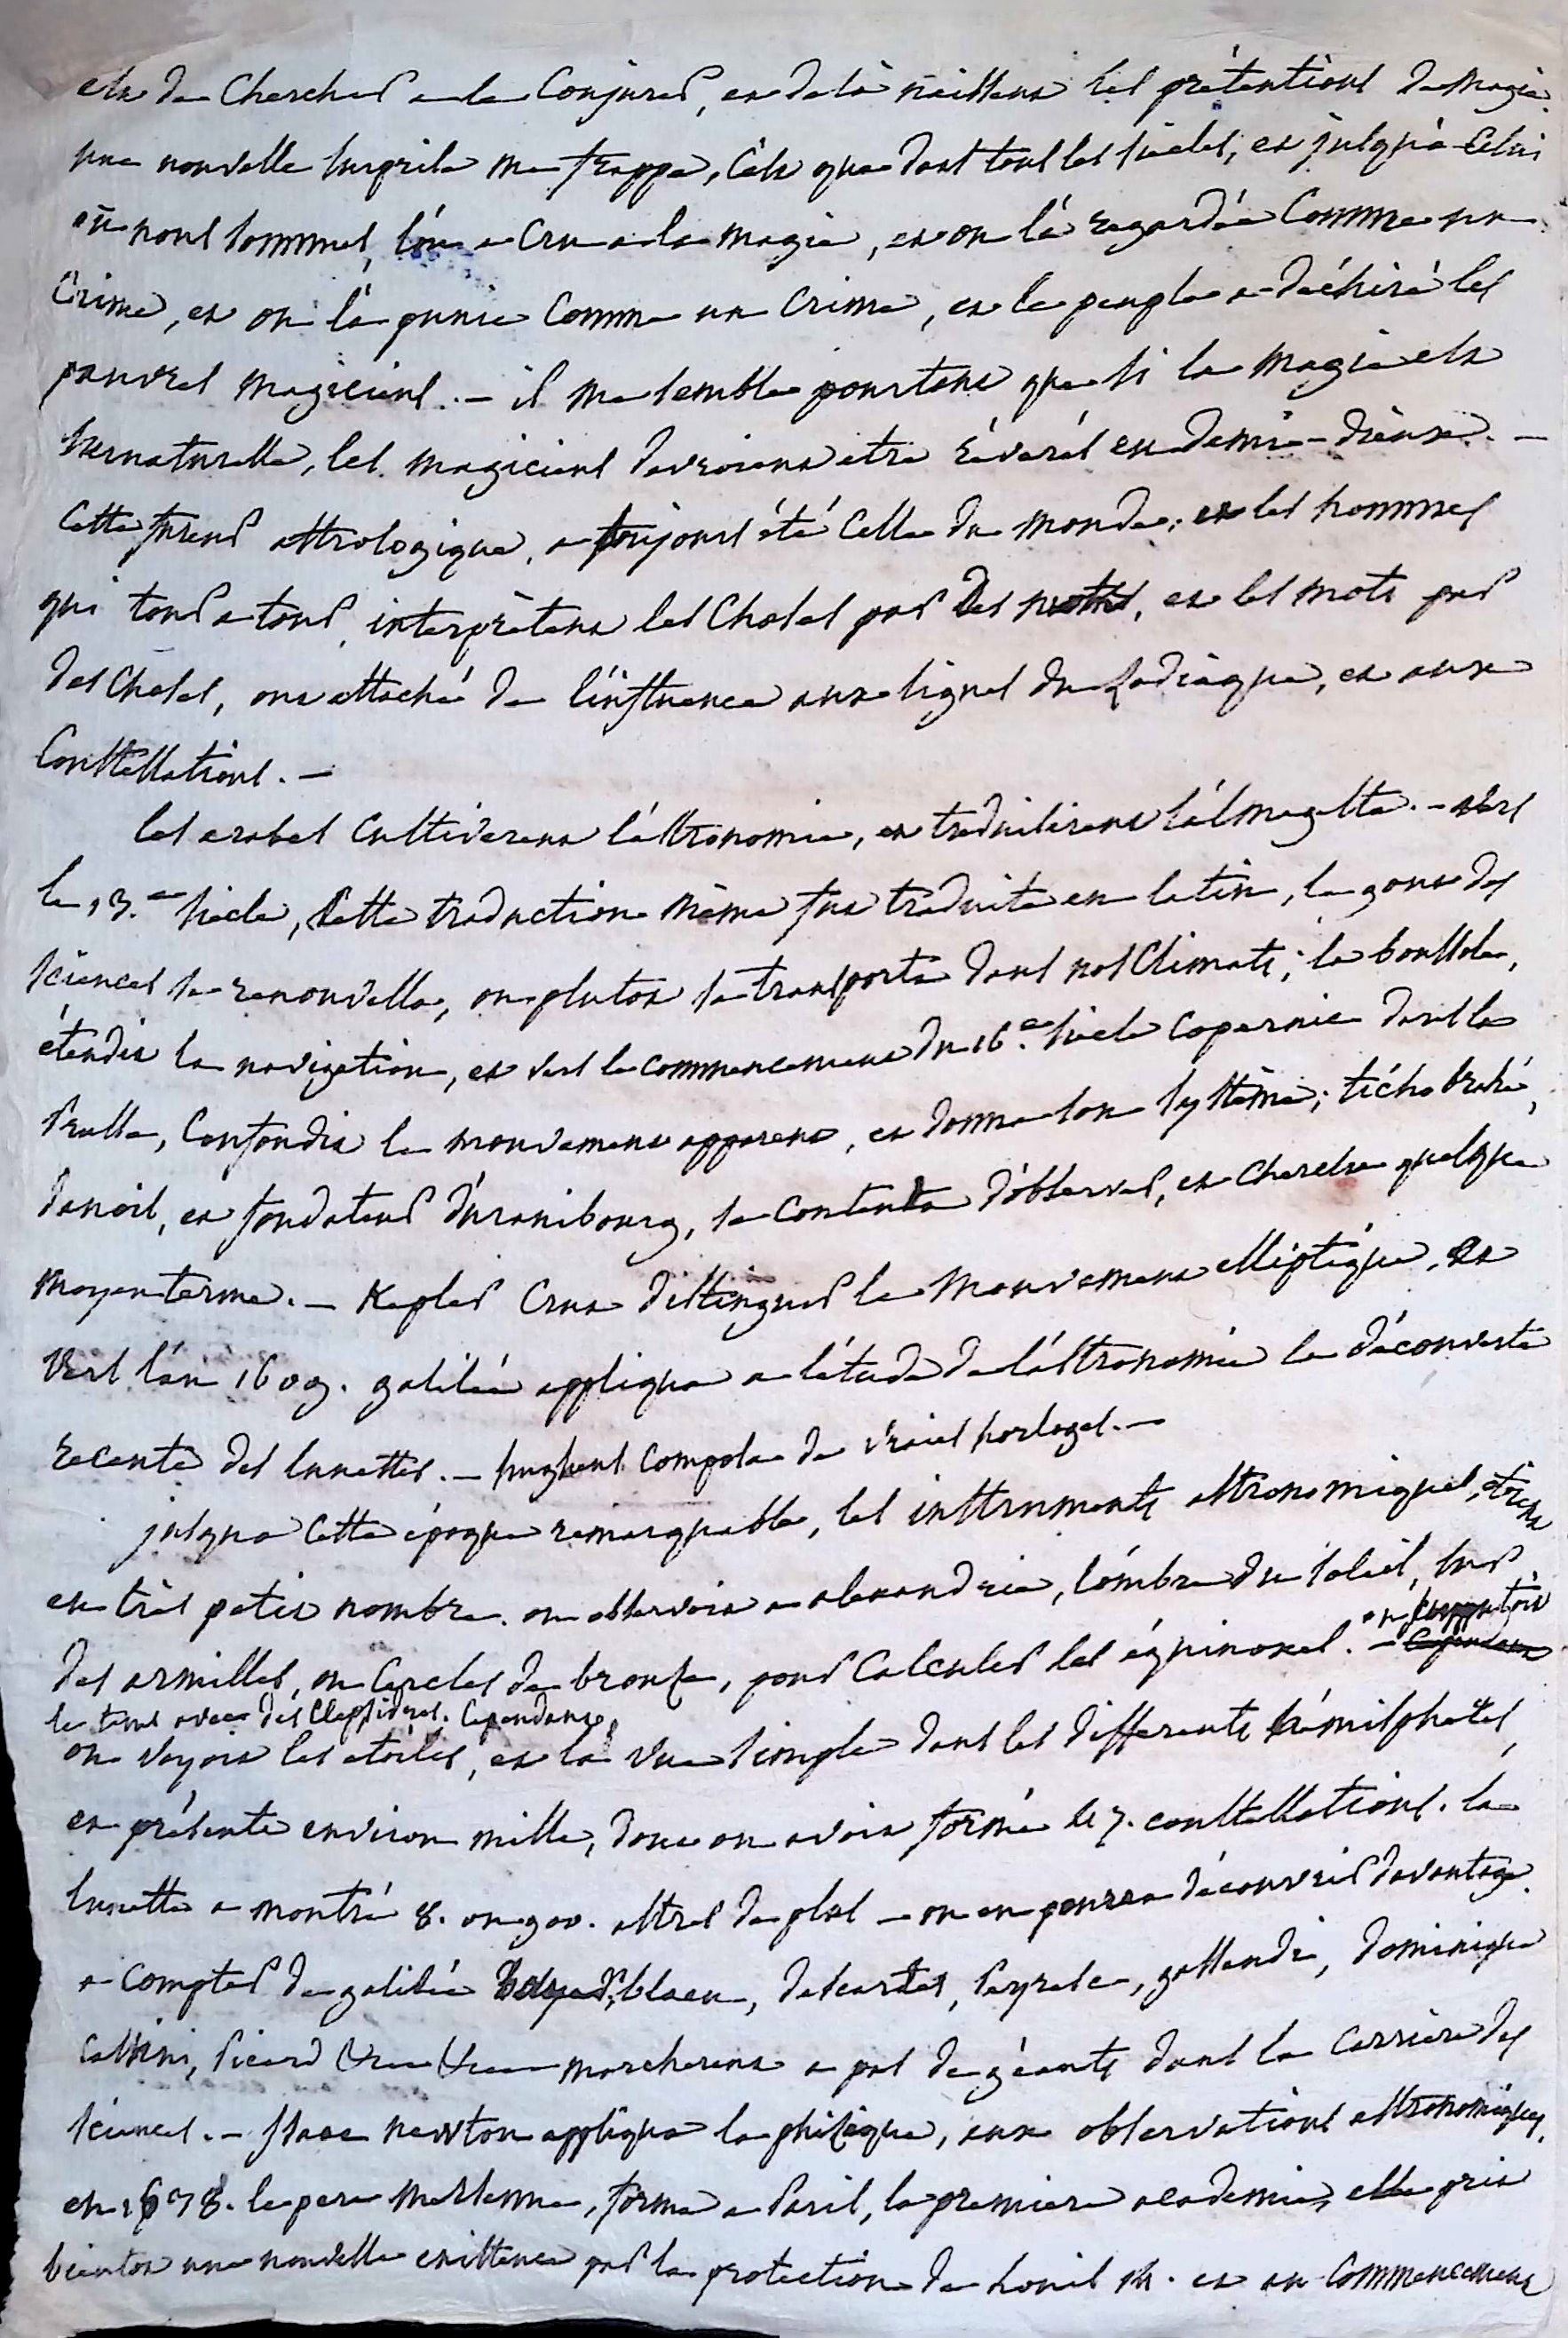 est de chercher a le conjurer, et de là naissent les prétentions de magie.
une nouvelle surprise me frappe, c'est que dans tous les siecles, et jusqu'à celui
où nous sommes, l'on a cru a la magie, et on l'a regardée comme un
crime, et on l'a punie comme un crime, et le peuple a déchiré les
pauvres magiciens. - il me semble pourtant que si la magie est
surnaturelle, les magiciens devroient etre révérés en demi-dieux. -
cette fureur astrologique, a toujours été celle du monde; et les hommes
qui tour a tour, interprètent les choses par des mots, et les mots par
des choses, ont attaché de l'influence aux signes du zodiaque, et aux
constellations. -
les arabes cultiverent l'astronomie, et traduisirent l'almageste. - vers
le 13.e siecle, cette traduction même fut traduite en latin, le gout des
sciences se renouvella, ou plutot se transporta dans nos climats; la boussole,
étendit la navigation, et vers le commencement du 16.e siecle copernic dans la
Prusse, confondit le mouvement apparent, et donna son systême; ticho brahé,
danois, et fondateur d'uranibourg, se contenta d'observer, et chercha quelque
moyen terme. - Kepler crut distinguer le mouvement elliptique, et
vers l'an 1609. galilée appliqua a l'étude de l'astronomie la découverte
recente des lunettes. - hughens composa de vraies horloges. -
jusqu'a cette époque remarquable, les instruments astronomiques, étoient
en très petit nombre. on observoit a alexandrie, l'ombre du soleil, sur
des armilles, ou cercles de bronze, pour calculer les équinoxes. - on comptoit
le tems avec des clepsidres. cependant
on voyoit les etoiles, et la vue simple dans les differents hémisphères,
en présente environ mille, dont on avoit formé les constellations. la
lunette a montré 8. ou 900. astres de plus - on en pourra découvrir davantage.
a compter de galilée blaeu, descartes, Peyresc, gassendi, dominique
cassini, Picard marcherent a pas de géants dans la carriere des
sciences. - isaac newton appliqua la phisique, aux observations astronomiques.
en 1638. le pere mersenne, forma a Paris, la premiere academie, elle prit
bientot une nouvelle existence par la protection de Louis 14. et au commencement